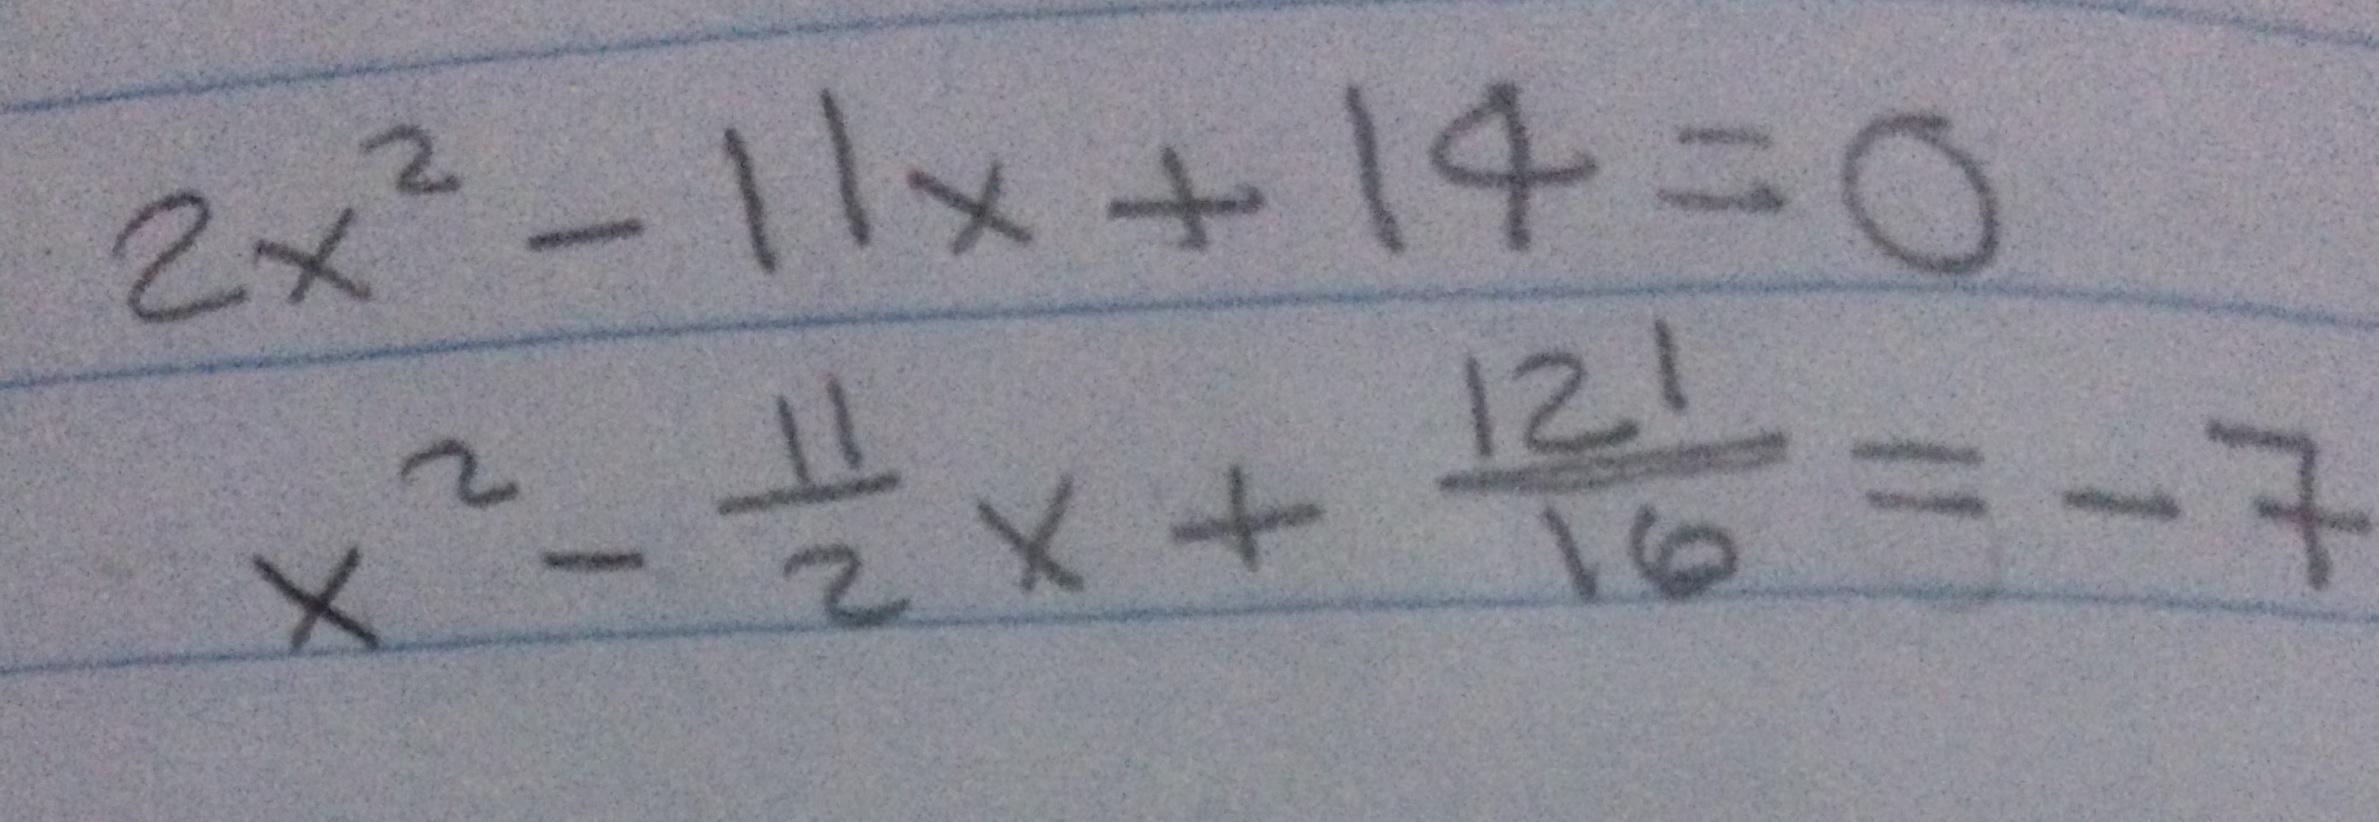 2x² - 11x + 14 = 0
x² - 11/2 x + 121/16 = -7